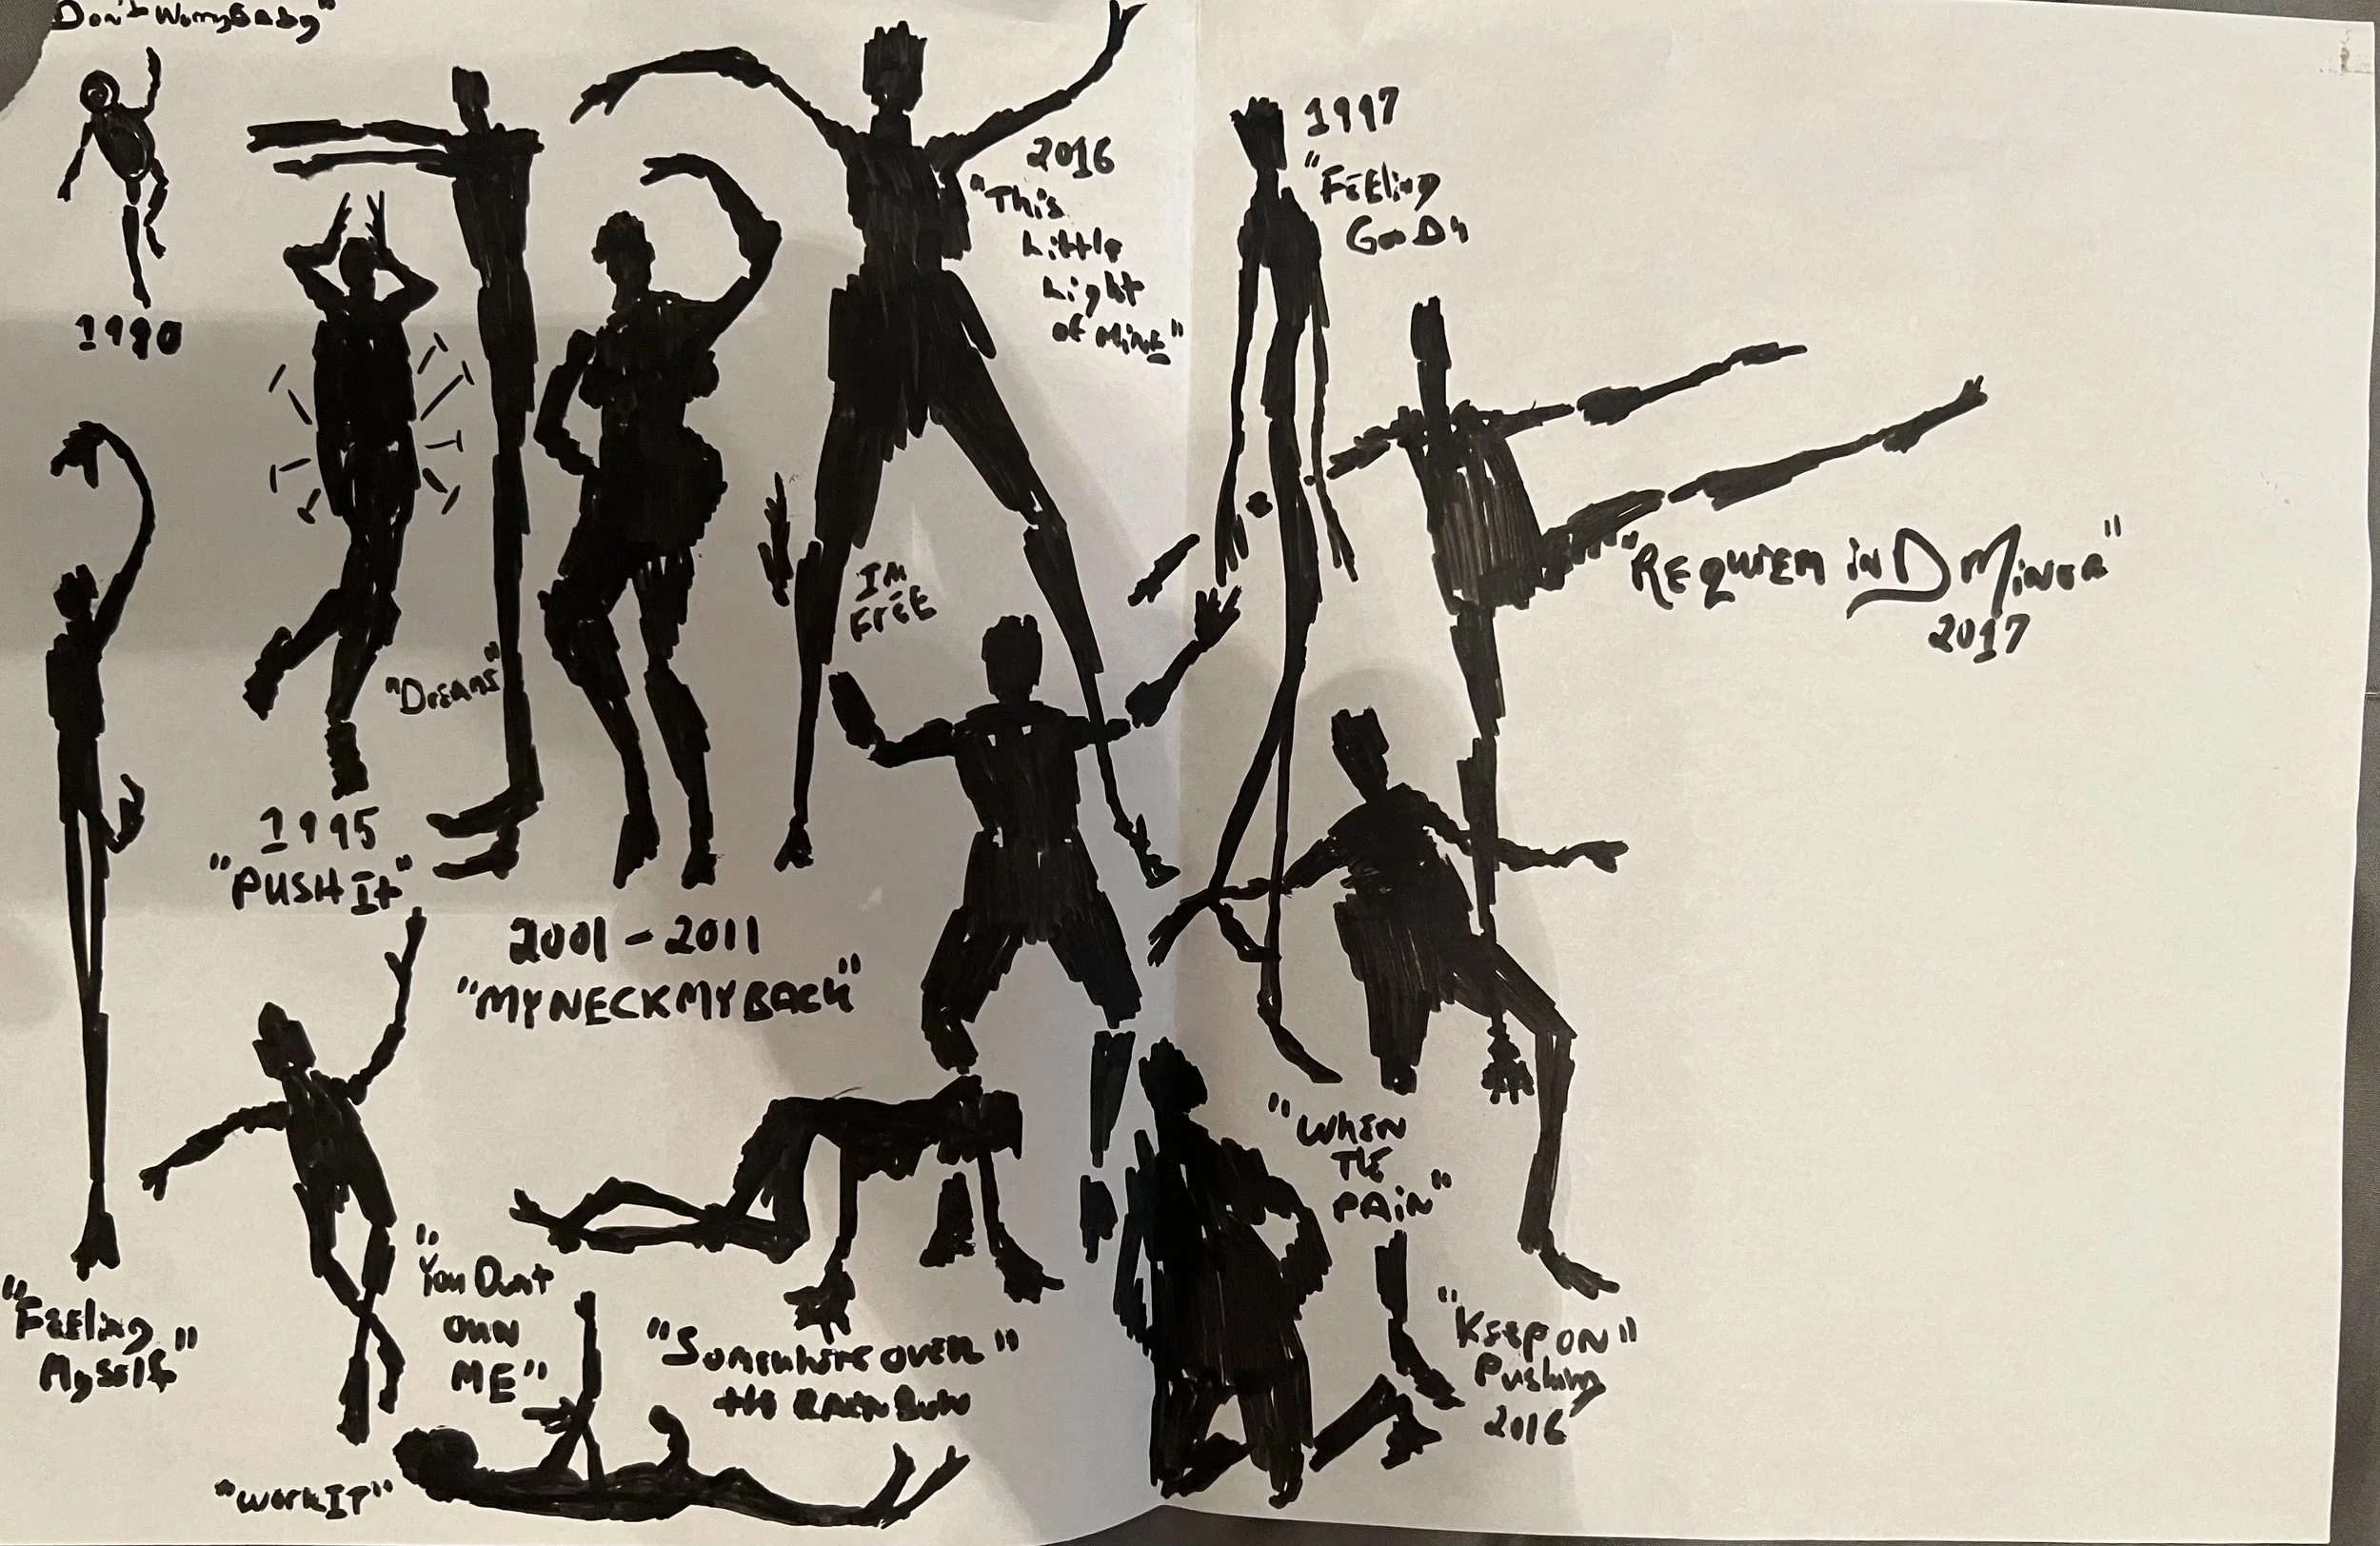 Don't Worry Baby"
1990
2016
"This
Little
Light
of Mine"
1997
"Feeling
Good"
IM
FreE
"REQUIEM in D Minor"
2017
"Dreams"
1995
"PUSH It"
2001 - 2011
"MY NECK MY BACK"
"When
The
Pain"
"Feeling
Myself"
"You Dont
own
ME"
"Somewhere over"
the RAINBOW
"Keep on"
Pushing
2016
"work IT"